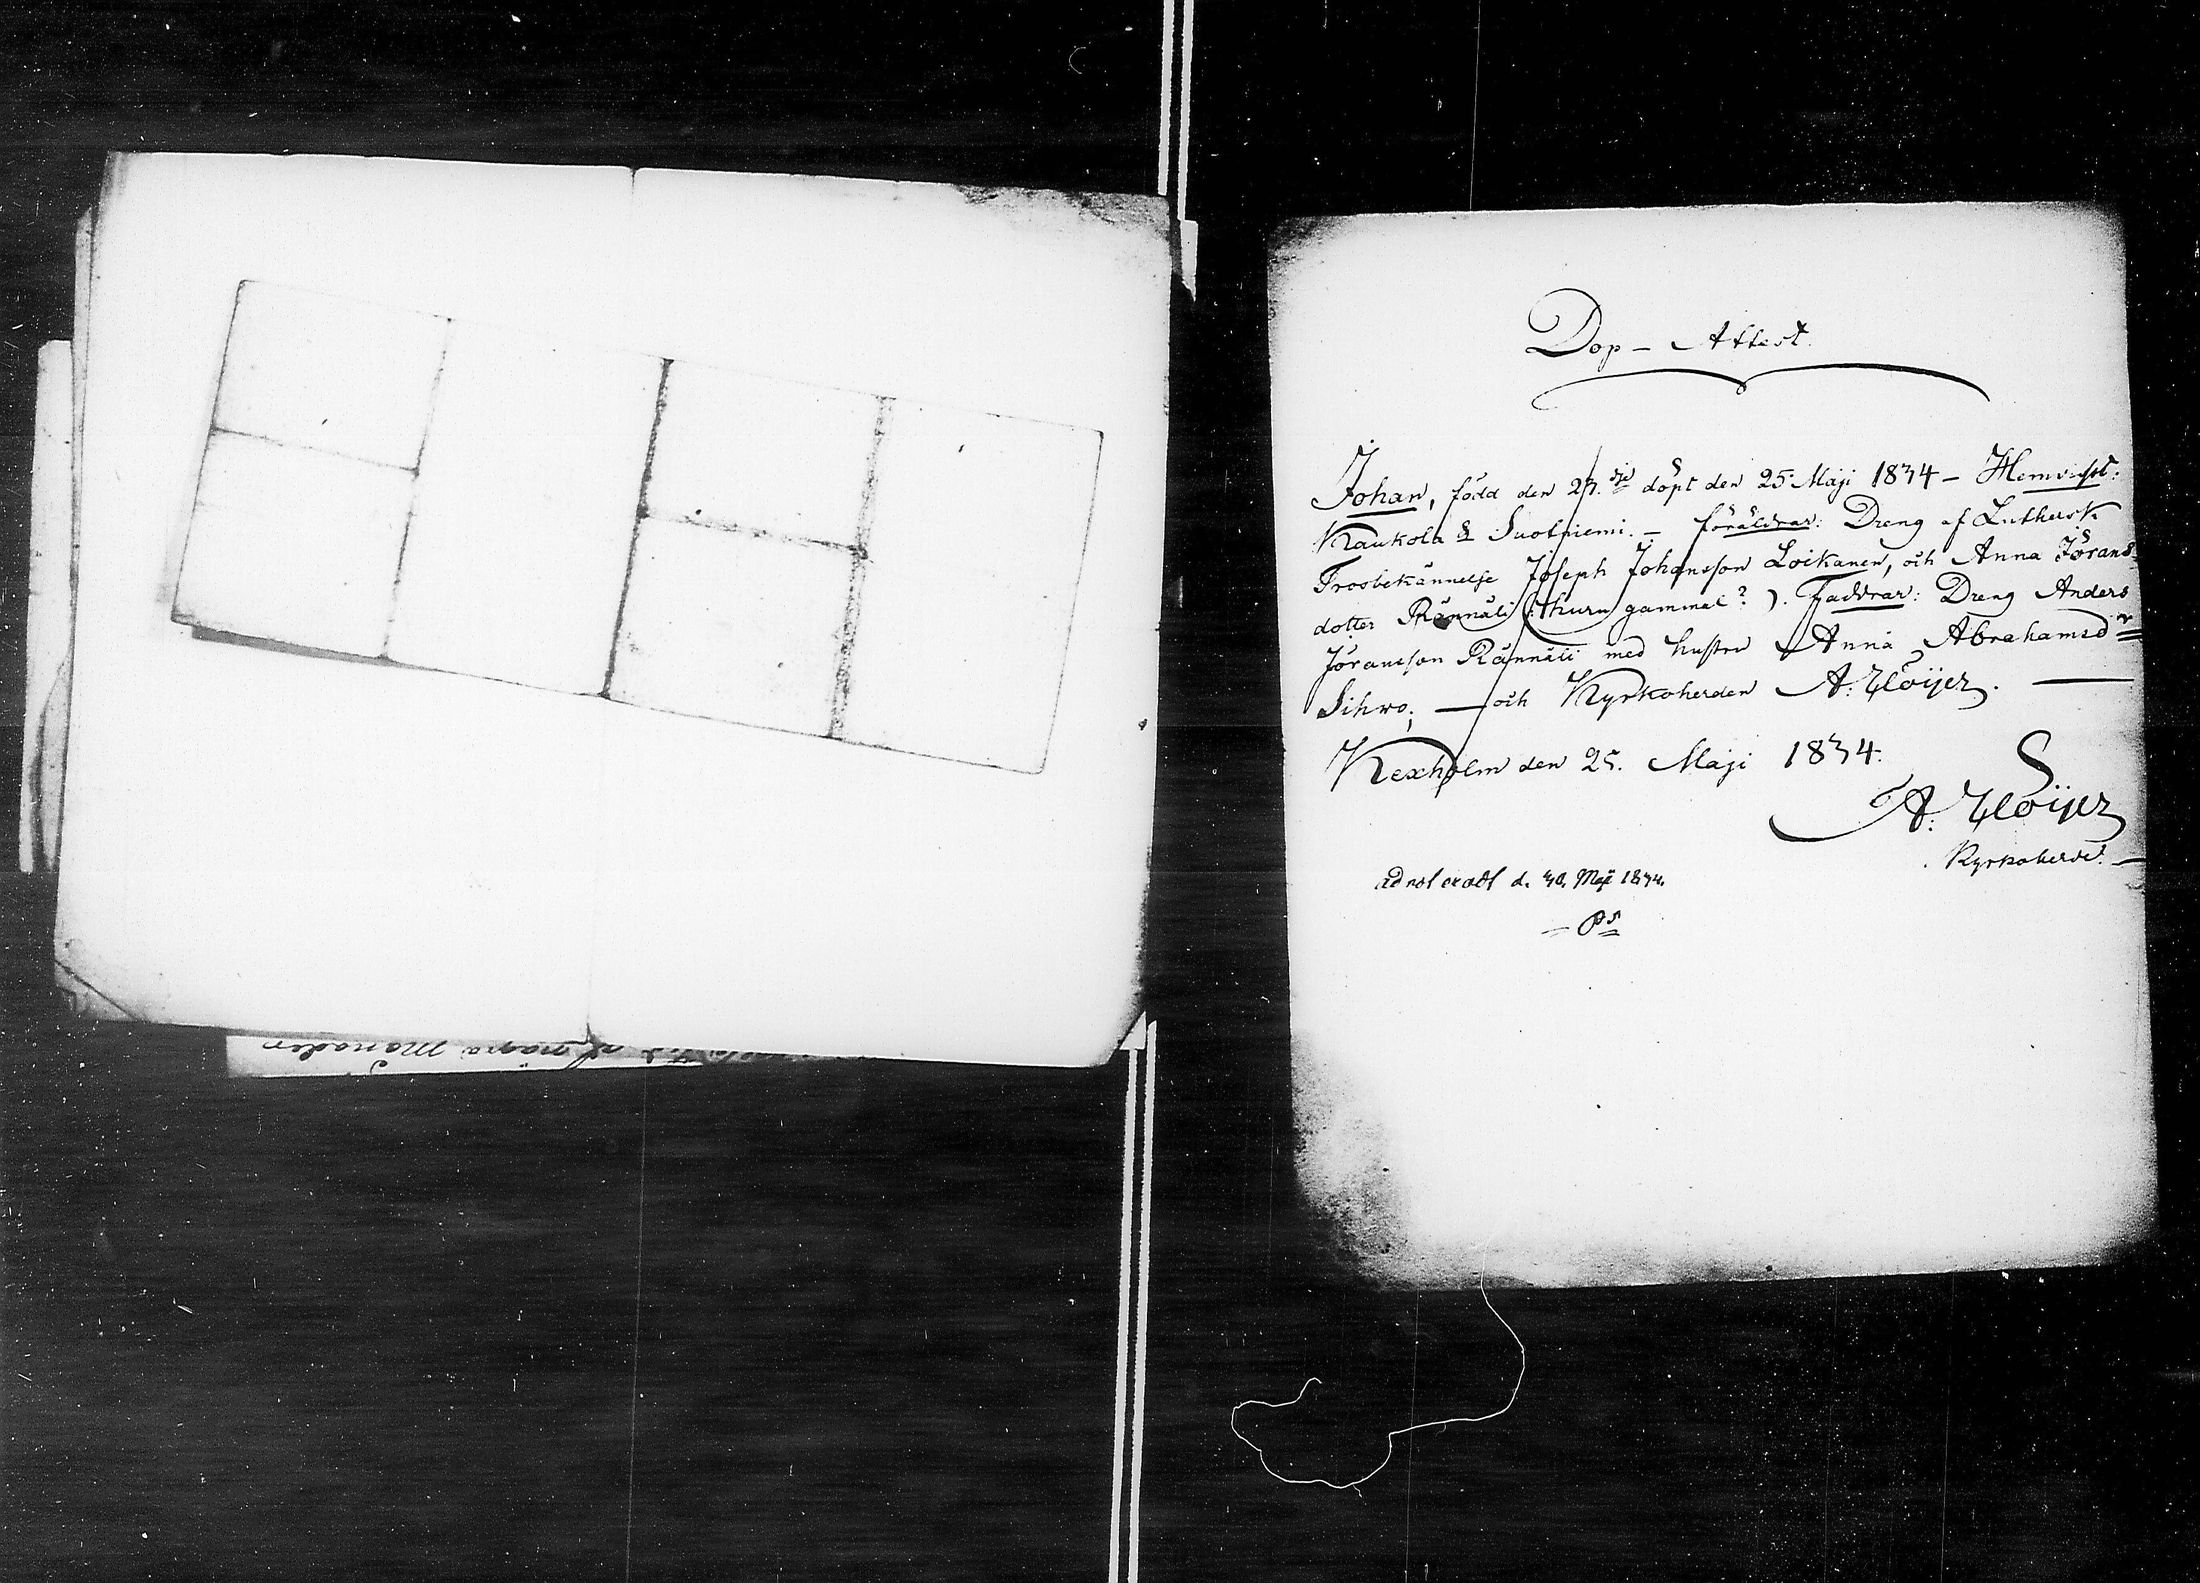 Dop - Attest.
Johan, född den 23.dje döpt den 25 Maji 1834 - Hemvist:
Kaukola & Suotniemi. - föräldrar: Dreng af Luthersk
Troosbekännelse Joseph Johansson Loikanen, och Anna Jörans-
dotter Rännäli (: huru gammal? ). Faddrar: Dreng Anders
Jöransson Rännäli med hustru Anna Abrahamsdr
Sihvo; — och Kyrkoherden A:
Kexholm den 25. Maji 1834.
A:
Kyrkoherde.
adnoteradt d. 30. Maji 1834.
månader